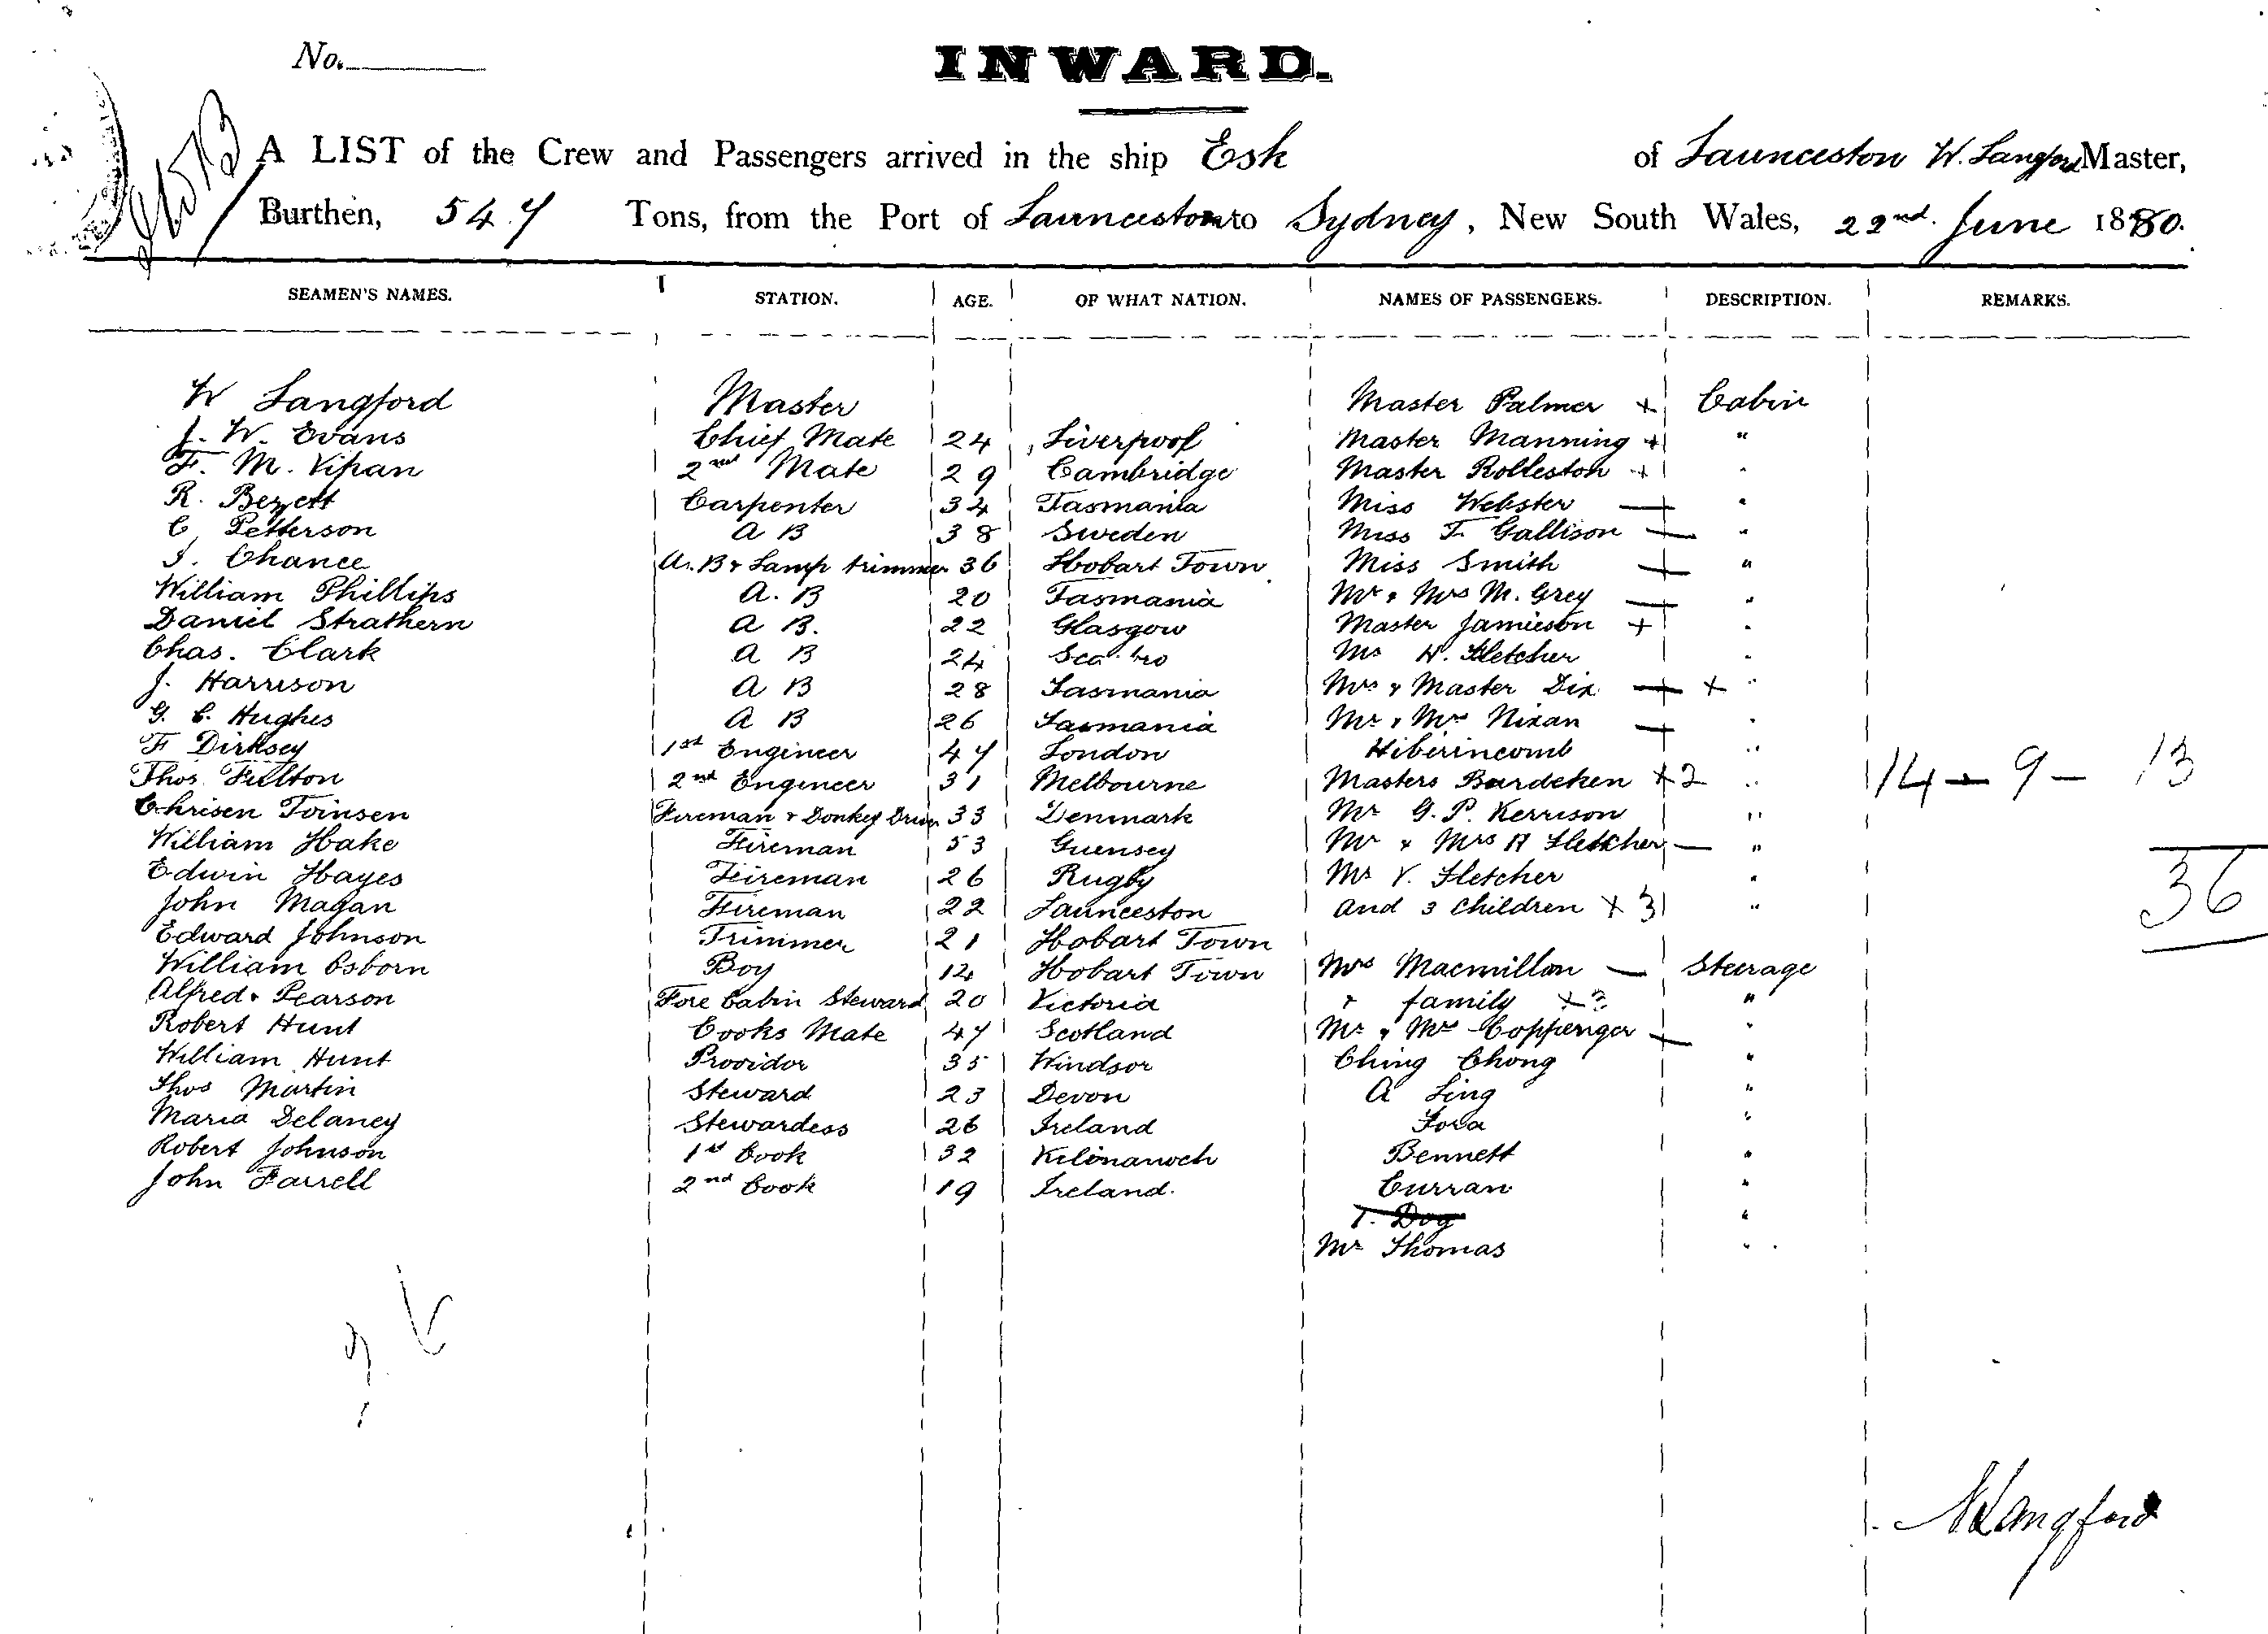 No.
INWARD.
A LIST of the Crew and Passengers arrived in the ship Esk of Launceston W. Langford Master,
Burthen, 547 Tons, from the Port of Launceston to Sydney, New South Wales, 22nd. June 1880.
SEAMEN'S NAMES. STATION. AGE. OF WHAT NATION. NAMES OF PASSENGERS. DESCRIPTION. REMARKS.
W Langford Master Master Palmer + Cabin
J. W. Evans Chief Mate 24 Liverpool Master Manning + "
F. M. Vipan 2nd Mate 29 Cambridge Master Rolleston + "
R. Bezett Carpenter 34 Tasmania Miss Webster "
C Petterson A B 38 Sweden Miss F. Gallison "
J. Chance A.B & Lamp trimmer 36 Hobart Town Miss Smith "
William Phillips A. B 20 Tasmania Mr & Mrs M. Grey "
Daniel Strathern A B. 22 Glasgow Master Jamieson + "
Chas. Clark A B 24 Sca'bro H. Fletcher "
J. Harrison A B 28 Tasmania Mrs & Master Dix + x "
G. C. Hughes A B 26 Tasmania Mr & Mrs Nixan "
F Dirksey 1st Engineer 47 London Hiberincomb "
Thos Fulton 2nd Engineer 31 Melbourne Masters Bardeken x 2 " 14 - 9 - 13
Chrisen Toinsen Fireman & Donkey Driver 33 Denmark Mr G. P. Kerrison "
William Hake Fireman 53 Guensey Mr & Mrs A Fletcher — "
Edwin Hayes Fireman 26 Rugby V. Fletcher " 36
John Magan Fireman 22 Launceston and 3 children x 3 "
Edward Johnson Trimmer 21 Hobart Town
William Osborn Boy 14 Hobart Town Mrs Macmillan — Steerage
Alfred Pearson Fore Cabin Steward 20 Victoria & family x "
Robert Hunt Cooks Mate 47 Scotland Mr & Mrs Coppenger "
William Hunt Providor 35 Windsor Ching Chong "
Thos Martin Steward 23 Devon A Ling "
Maria Delaney Stewardess 26 Ireland "
Robert Johnson 1st Cook 32 Bennett "
John Farrell 2nd Cook 19 Ireland. Curran "
T. Dog "
Mr Thomas "
W Langford